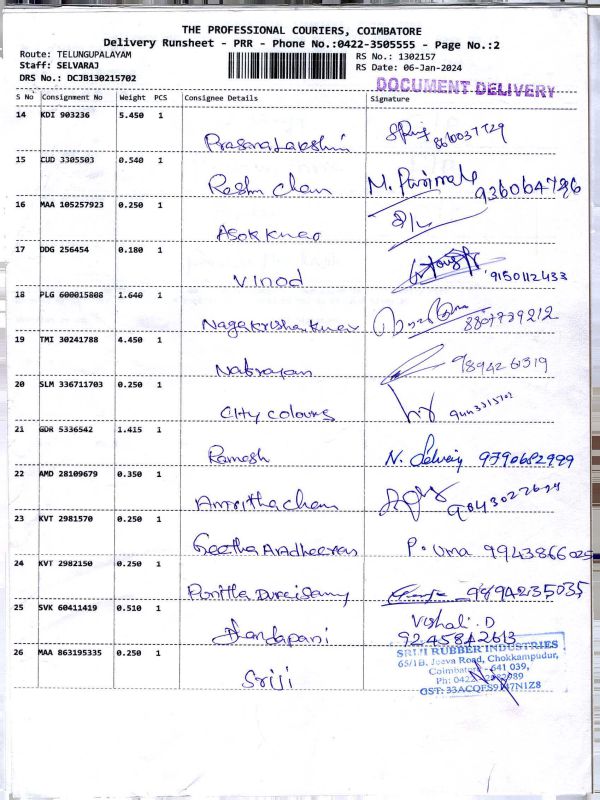 THE PROFESSIONAL COURIERS, COIMBATORE
Delivery Runsheet - PRR - Phone No.:0422-3505555 - Page No.:2
Route: TELUNGUPALAYAM
Staff: SELVARAJ
DRS No.: DCJB130215702
RS No.: 1302157
RS Date: 06-Jan-2024
DOCUMENT DELIVERY
S No Consignment No Weight PCS Consignee Details Signature
14 KDI 903236 5.450 1
Prasanalakshmi 8610037729
15 CUD 3305503 0.540 1
Reshi Chan M. Parimala
16 MAA 105257923 0.250 1
Asok kumar
17 DDG 256454 0.180 1
Vinod 9150112433
18 PLG 600015808 1.640 1
Nagakrishankumar 8807739212
19 TMI 30241788 4.450 1
Natrayan
20 SLM 336711703 0.250 1
City colours
21 GDR 5336542 1.415 1
Ramesh N. Selvaraj 9790682999
22 AMD 28109679 0.350 1
Amritha Chem
23 KVT 2981570 0.250 1
Geetha P. Uma 9943866025
24 KVT 2982150 0.250 1
Punitha Duraisamy 9894235035
25 SVK 60411419 0.510 1
Thandapani Vishali. D
9245842613
26 MAA 863195335 0.250 1
Sriji
SRIJI RUBBER INDUSTRIES
65/1B, Jeeva Road, Chokkampudur,
Coimbatore - 641 039,
Ph: 0422
GST: